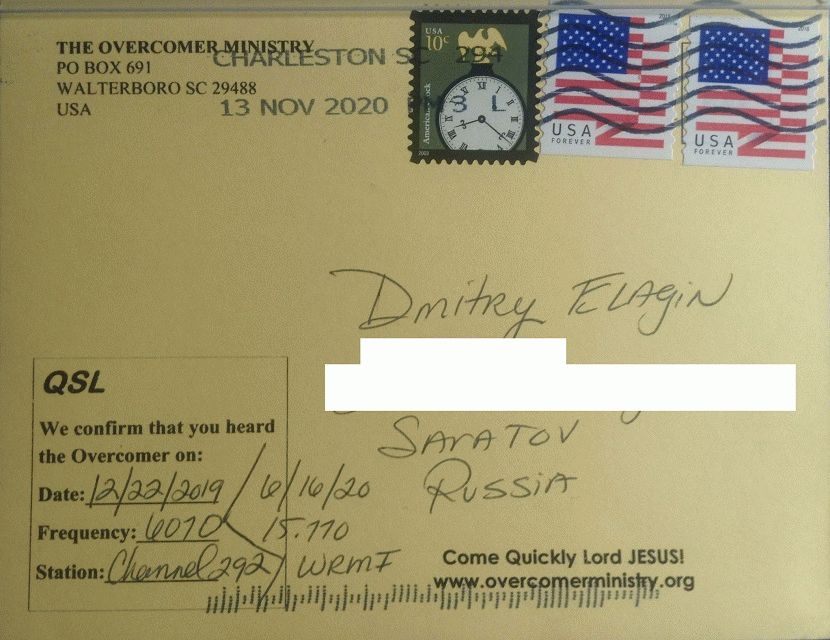 THE OVERCOMER MINISTRY
PO BOX 691
WALTERBORO SC 29488
USA
CHARLESTON SC 294
13 NOV 2020 PM 3 L
USA
10c
American Clock
2003
USA
FOREVER
2018
USA
FOREVER
2018
Dmitry ELAGIN
SARATOV
RUSSIA
QSL
We confirm that you heard
the Overcomer on:
Date: 12/22/2019 / 6/16/20
Frequency: 6070 15.770
Station: Channel 292 / WRMI
Come Quickly Lord JESUS!
www.overcomerministry.org